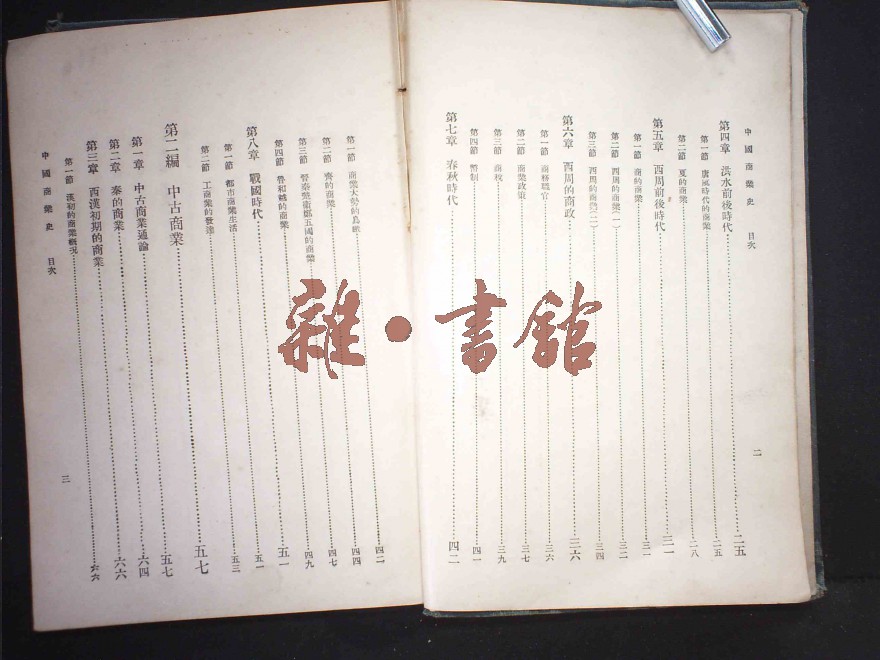 中國商業史 目次 二
第四章 洪水前後時代 二五
第一節 唐虞時代的商業 二五
第二節 夏的商業 二八
第五章 西周前後時代 三一
第一節 商的商業 三一
第二節 西周的商業(一) 三二
第三節 西周的商業(二) 三四
第六章 西周的商政 三六
第一節 商務職官 三六
第二節 商業政策 三七
第三節 商稅 三九
第四節 幣制 四一
第七章 春秋時代 四二
第一節 商業大勢的鳥瞰 四二
第二節 齊的商業 四四
第三節 晉秦楚衛鄭五國的商業 四七
第四節 魯和越的商業 四九
第八章 戰國時代 五一
第一節 都市商業生活 五一
第二節 工商業的發達 五三
第二編 中古商業 五七
第一章 中古商業通論 五七
第二章 秦的商業 六四
第三章 西漢初期的商業 六六
第一節 漢初的商業概況 六六
中國商業史 目次 三
雜·書館